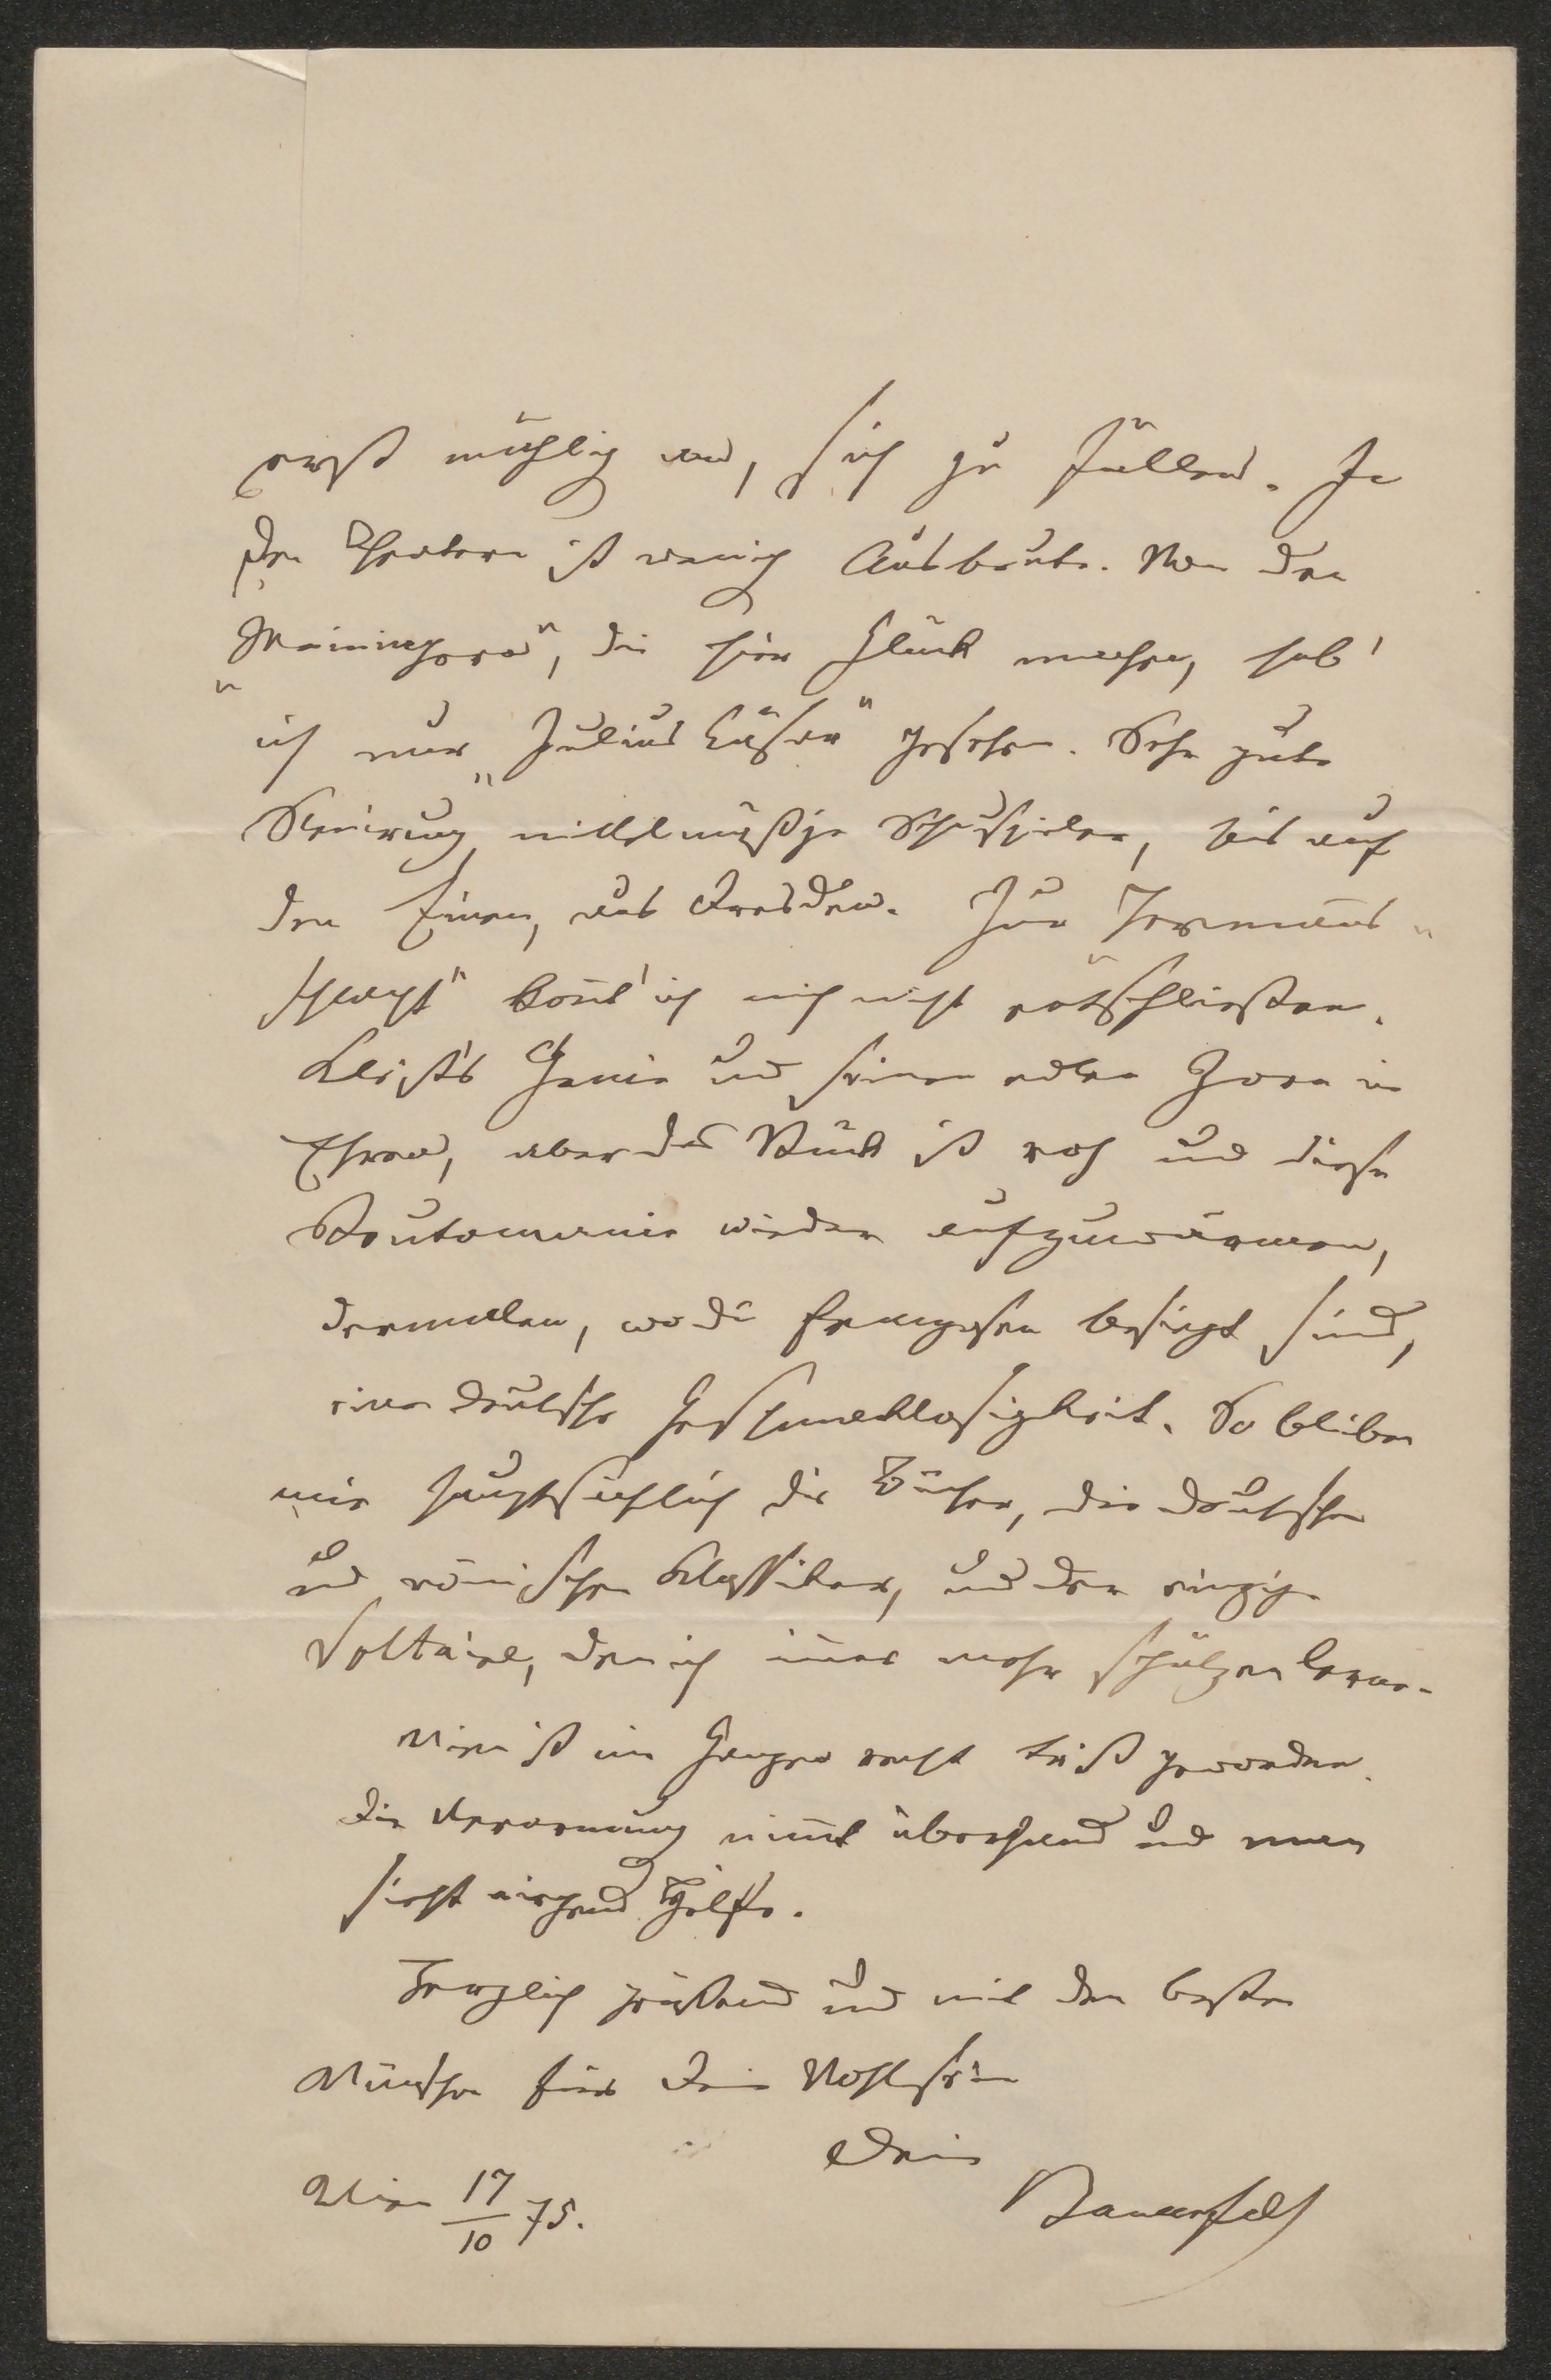 erst mählig an, sich zu füllen. In
den Theatern ist wenig Ausbeute. Von den
„Meiningern", die hier Glück machen, hab'
ich nur „Julius Cäsar" gesehen. Sehr gute
Scenirung, mittelmäßige Schauspieler, bis auf
den Einen, aus Dresden. Zur „Hermans-
schlacht" konnt' ich mich nicht entschließen.
Kleist's Genie und seinen edlen Zorn in
Ehren, aber das Stück ist roh und diese
Teutomanie wieder aufzuwärmen,
dermalen, wo die Franzosen besiegt sind,
eine deutsche Geschmacklosigkeit. So bleiben
mir hauptsächlich die Bücher, die deutschen
und römischen Klassiker, und der einzige
Voltaire, den ich immer mehr schätzen lerne.
Wien ist im Ganzen recht trist geworden.
Die Verarmung nimmt überhand und man
sieht nirgend Hilfe.
Herzlich grüßend und mit den besten
Wünschen für Dein Wohlsein
Dein
Bauernfeld
Wien 17/10 75.